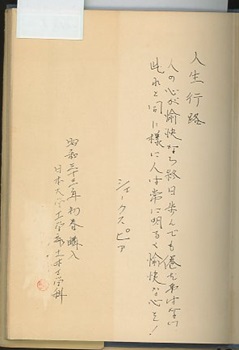 人生行路
人の心が愉快なら終日歩んでも倦む事はない
其れと同じ様に人は常に明るく愉快な心を!
シェークスピア
昭和三十二年初春購入
日本大学工学部土木工学科